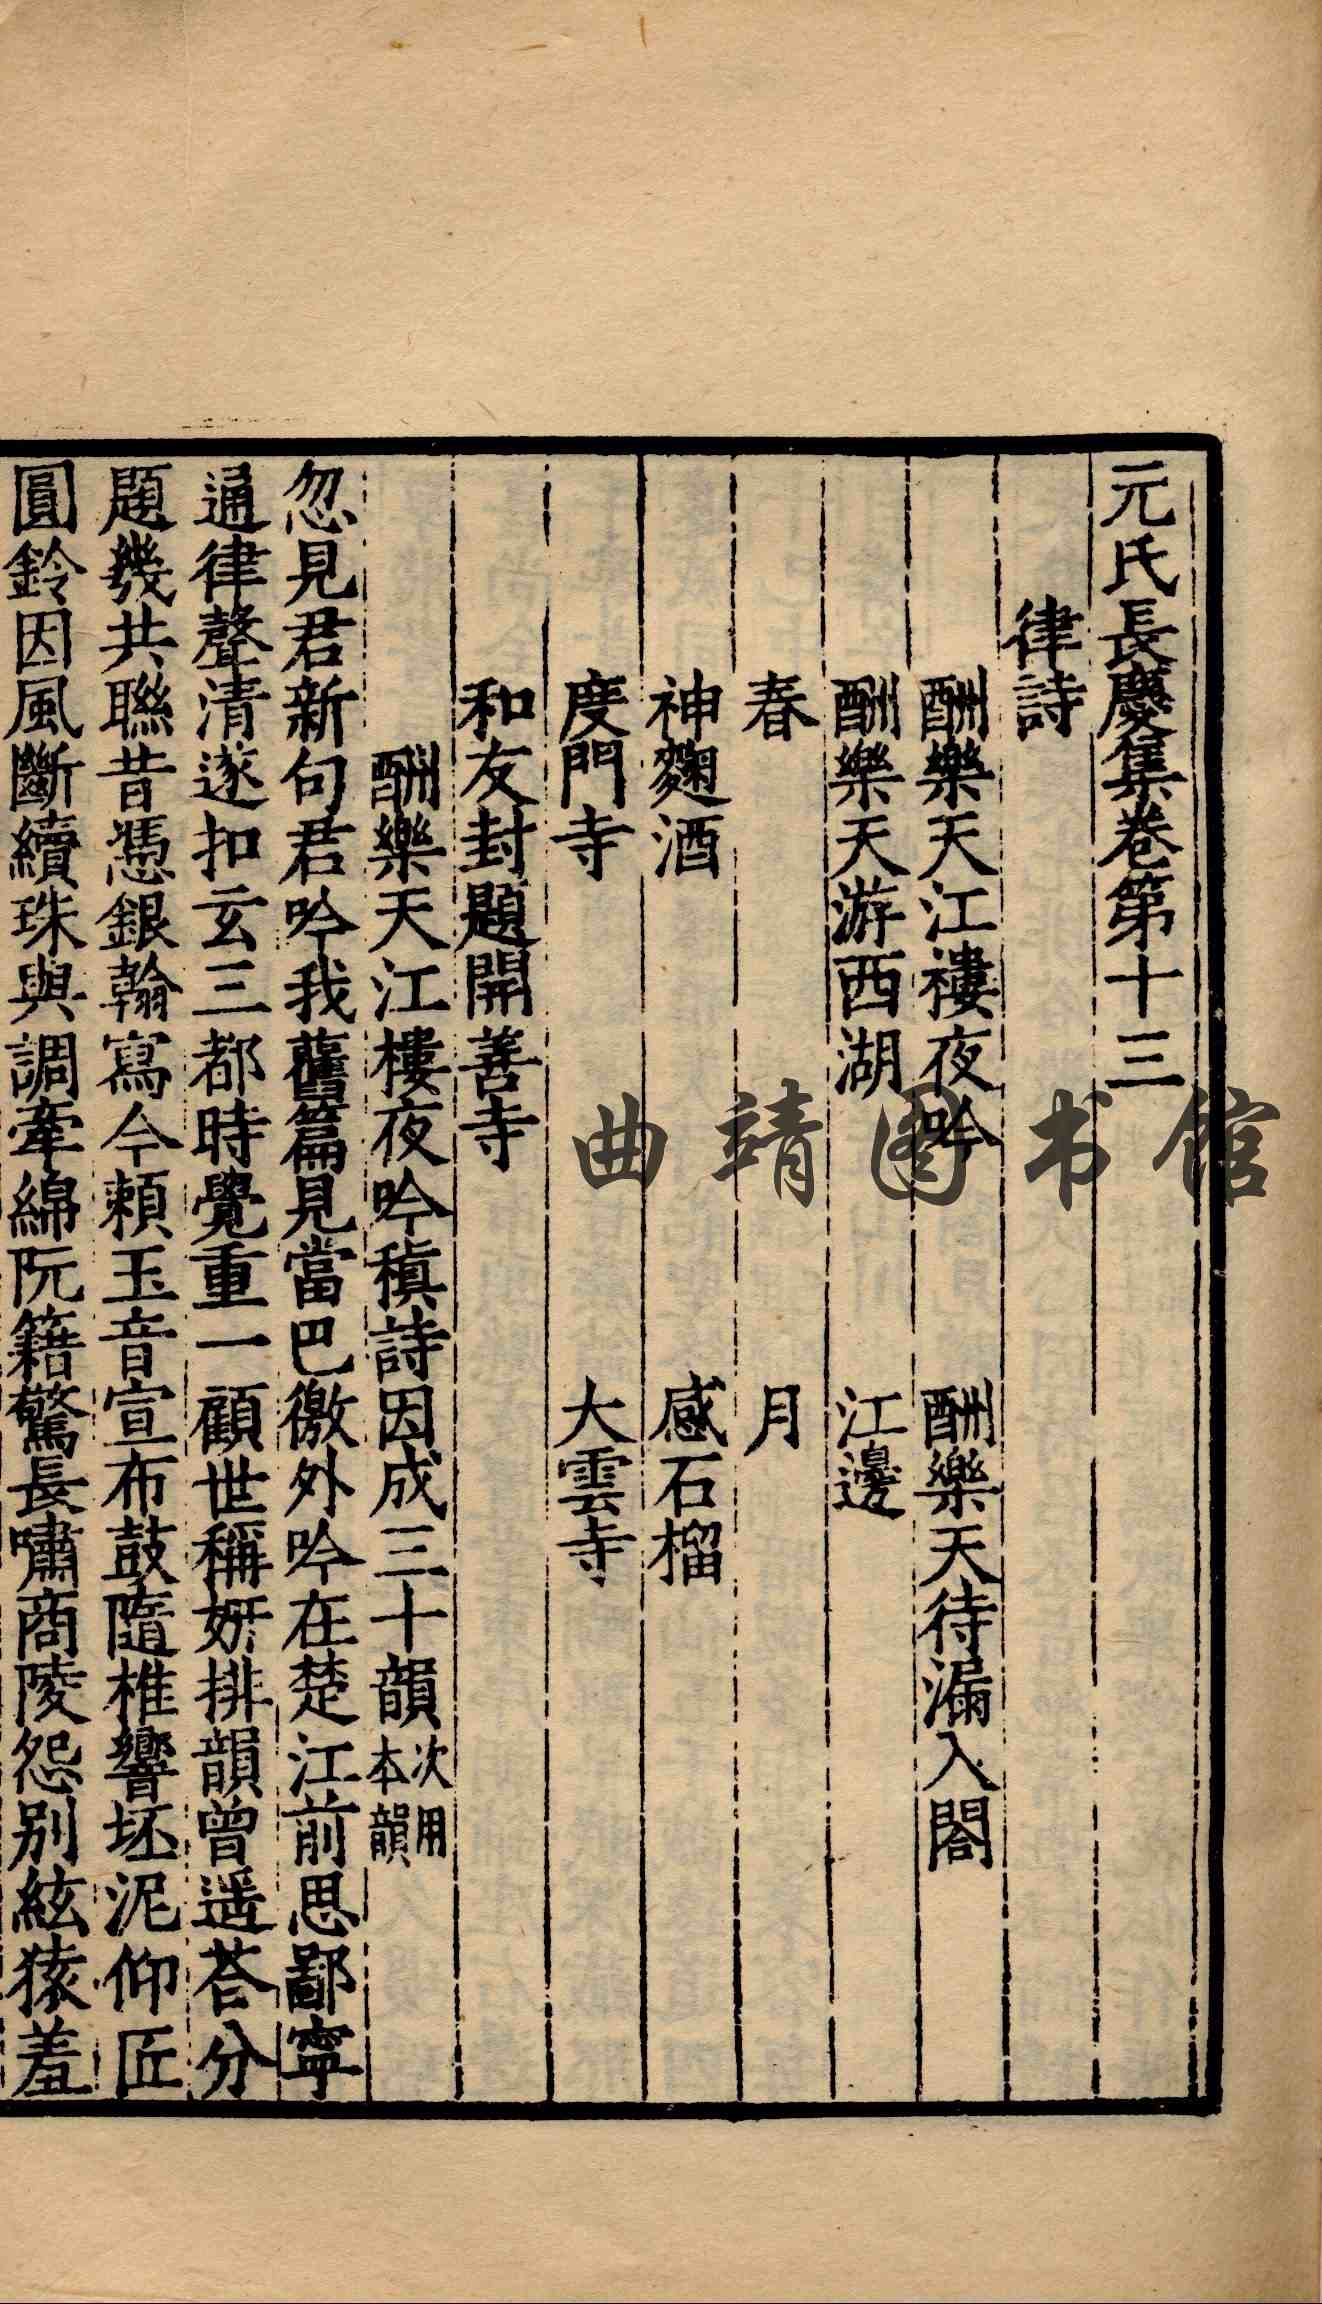 元氏長慶集卷第十三
律詩
酬樂天江樓夜吟 酬樂天待漏入閤
酬樂天游西湖 江邊
春 月
神麴酒 感石榴
度門寺 大雲寺
和友封題開善寺
酬樂天江樓夜吟稹詩因成三十韻 次用本韻
忽見君新句君吟我舊篇見當巴徼外吟在楚江前思鄙寧
通律聲清遂扣玄三都時覺重一顧世稱妍排韻曾遥荅分
題幾共聯昔憑銀翰寫今賴玉音宣布鼓隨椎響坯泥仰匠
圓鈴因風斷續珠與調牽綿阮籍驚長嘯商陵怨别絃猿羞
曲靖图书馆